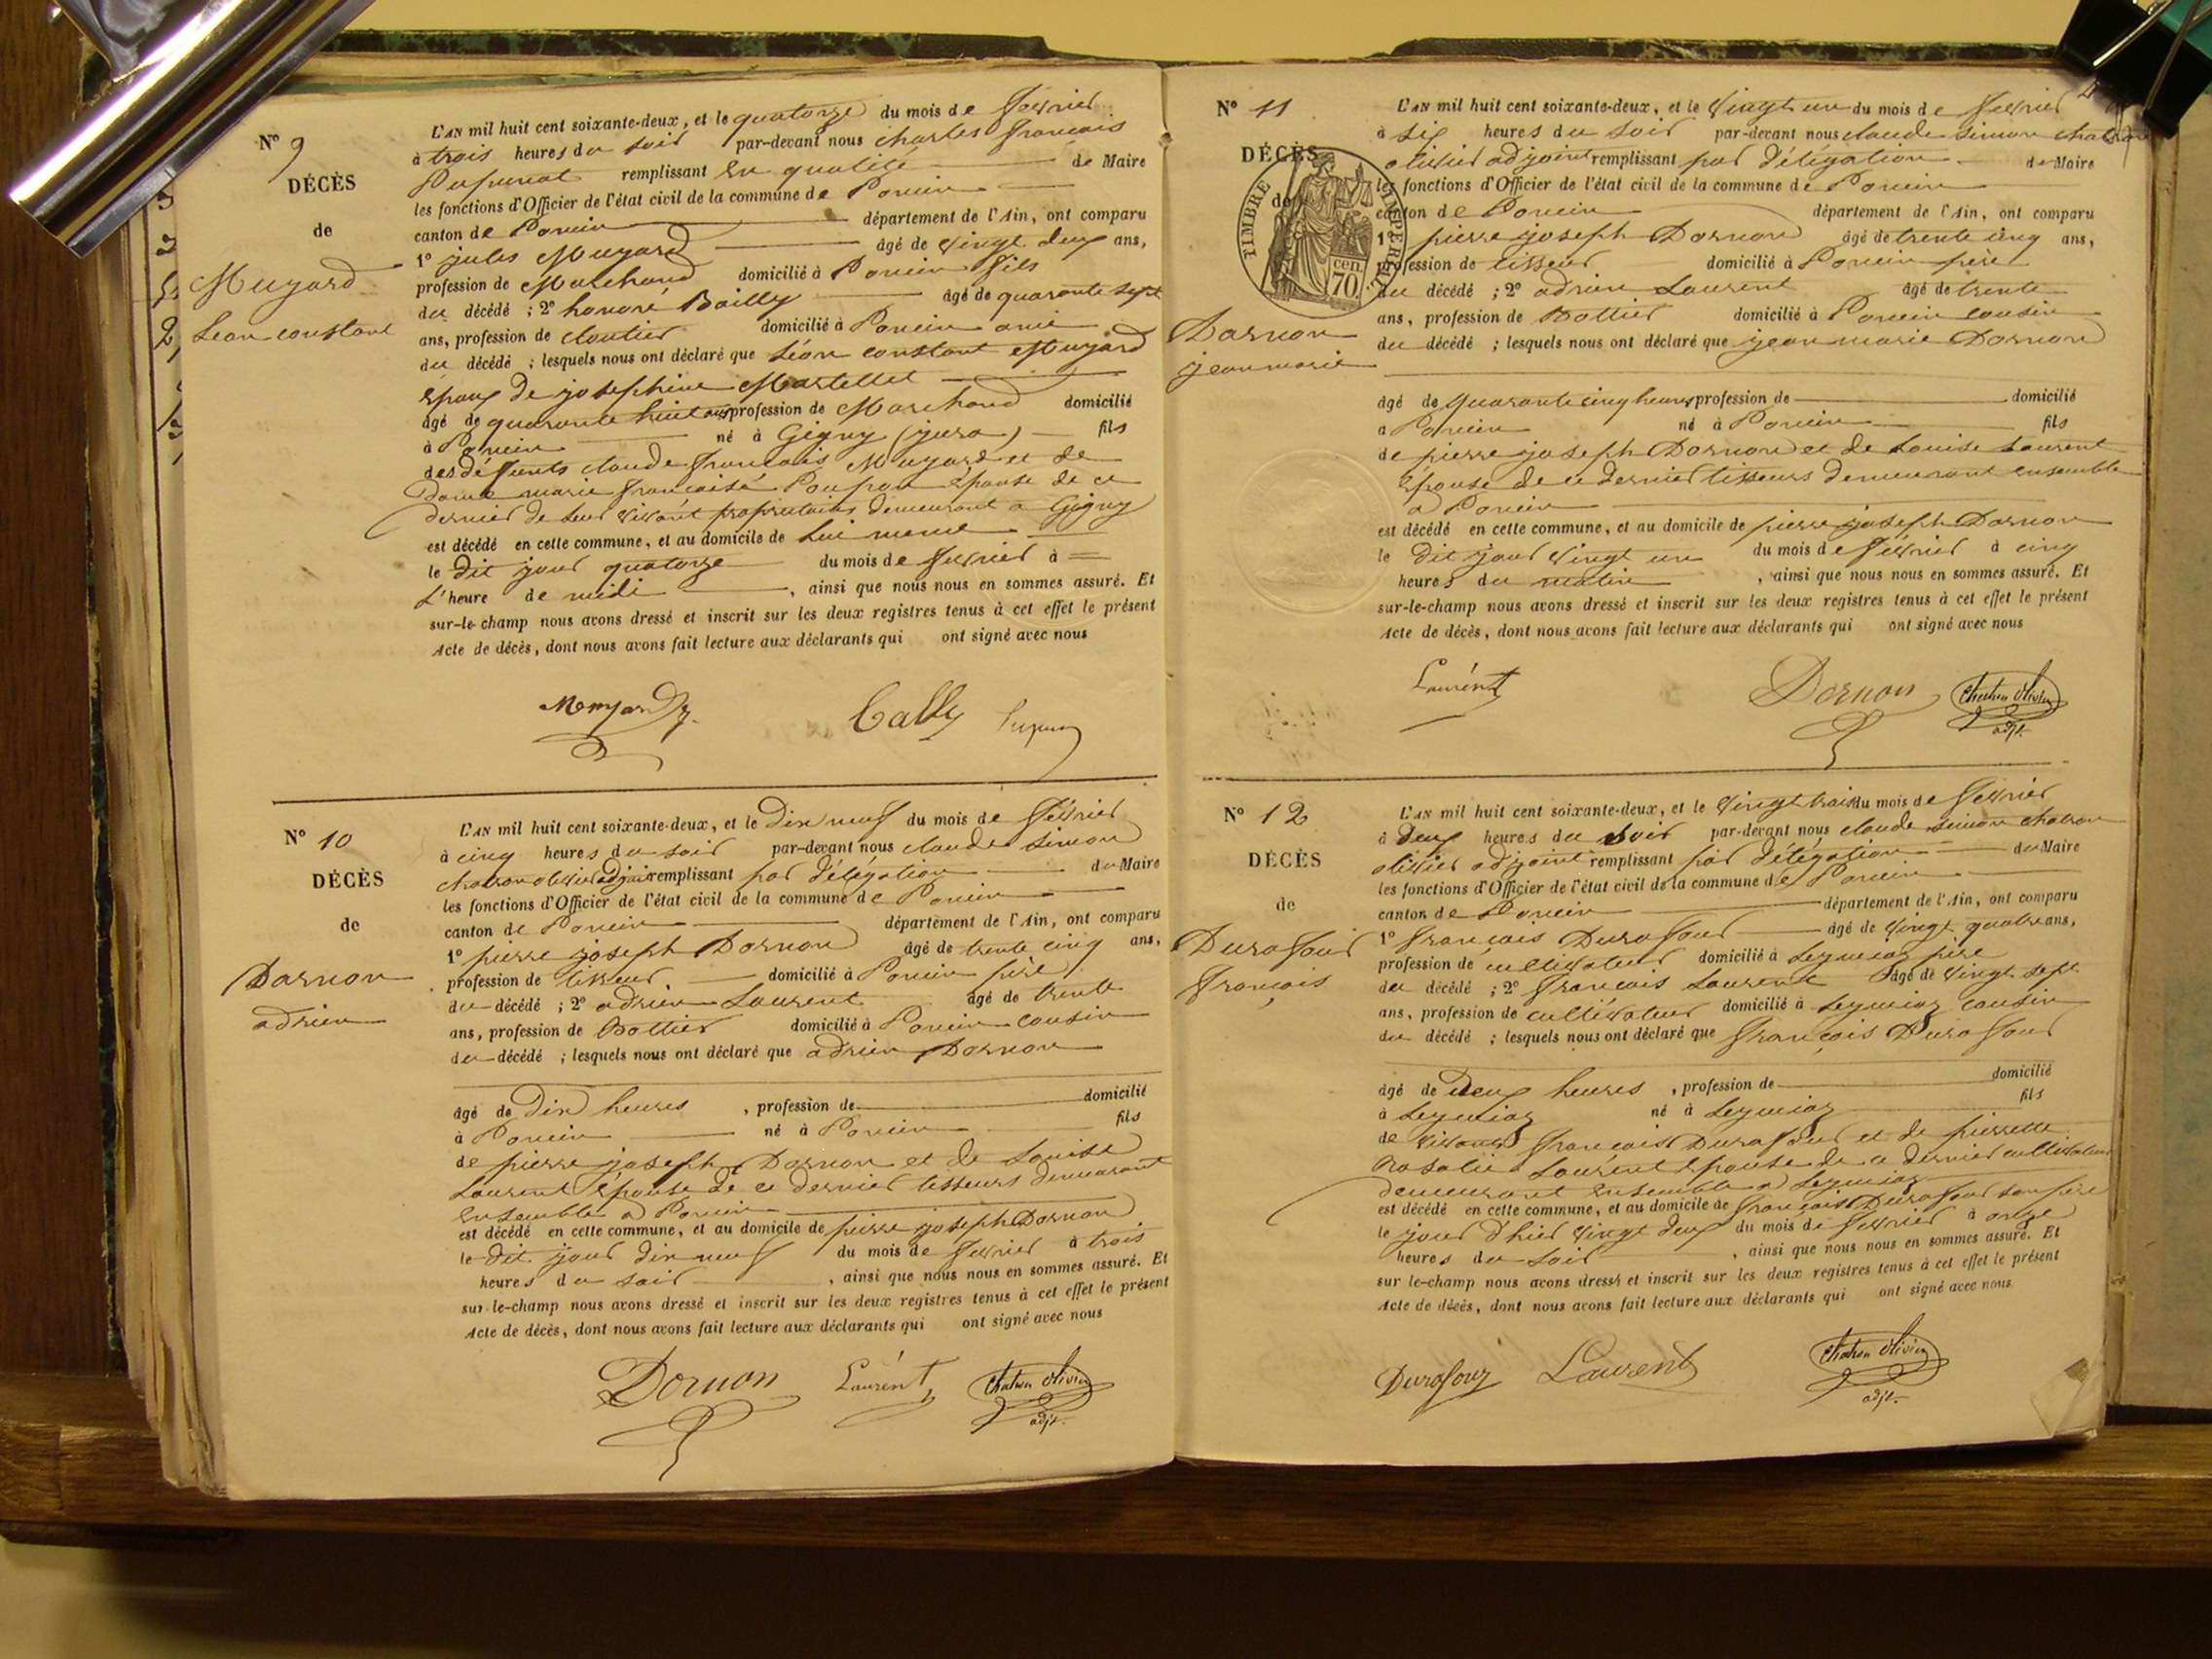 N° 9
DÉCÈS
de
Muyard
Léon constant
L'AN mil huit cent soixante-deux, et le quatorze du mois de fevrier
à trois heures du soir par-devant nous charles francois
remplissant en qualité de Maire
les fonctions d'Officier de l'état civil de la commune de Poncin
canton de Poncin département de l'Ain, ont comparu
1° jules Muyard âgé de vingt deux ans,
profession de Marchand domicilié à Poncin fils
du décédé ; 2° honoré Bailly âgé de quarante sept
ans, profession de cloutier domicilié à Poncin ami
du décédé ; lesquels nous ont déclaré que Léon constant Muyard
Epoux de josephine Martellet
âgé de quarante huit ans profession de Marchand domicilié
à Poncin né à Gigny (jura) fils
des défunts claude francois Muyard et de
Dame marie francoise Poupon Epouse de ce
dernier de leur vivant propriétaires demeurant a Gigny
est décédé en cette commune, et au domicile de lui meme
le dit jour quatorze du mois de fevrier à =
L'heure de midi , ainsi que nous nous en sommes assuré. Et
sur-le-champ nous avons dressé et inscrit sur les deux registres tenus à cet effet le présent
Acte de décès, dont nous avons fait lecture aux déclarants qui ont signé avec nous
N° 10
DÉCÈS
de
Dornon
adrien
L'AN mil huit cent soixante-deux, et le Dix neuf du mois de Février
à cinq heures du soir par-devant nous claude simon
chatron olivier adjoint remplissant par délégation du Maire
les fonctions d'Officier de l'état civil de la commune de Poncin
canton de Poncin département de l'Ain, ont comparu
1° pierre joseph Dornon âgé de trente cinq ans,
profession de tisseur domicilié à Poncin père
du décédé ; 2° adrien Laurent âgé de trente
ans, profession de Bottier domicilié à Poncin cousin
du décédé ; lesquels nous ont déclaré que adrien Dornon
âgé de Dix heures , profession de domicilié
à Poncin né à Poncin fils
de pierre joseph Dornon et de Louise
Laurent Epouse de ce dernier tisseurs demeurant
Ensemble a Poncin
est décédé en cette commune, et au domicile de pierre joseph Dornon
le dit jour dix neuf du mois de fevrier à trois
heures du soir , ainsi que nous nous en sommes assuré. Et
sur-le-champ nous avons dressé et inscrit sur les deux registres tenus à cet effet le présent
Acte de décès, dont nous avons fait lecture aux déclarants qui ont signé avec nous
Dornon Laurent Chatron Olivier
adjt.
N° 11
DÉCÈS
de
TIMBRE IMPERIAL
70 cen.
Dornon
jean marie
L'AN mil huit cent soixante-deux, et le vingt un du mois de fevrier
à six heures du soir par-devant nous claude simon chatron
olivier adjoint remplissant par délégation du Maire
les fonctions d'Officier de l'état civil de la commune de Poncin
canton de Poncin département de l'Ain, ont comparu
1° pierre joseph Dornon âgé de trente cinq ans,
profession de tisseur domicilié à Poncin père
du décédé ; 2° adrien Laurent âgé de trente
ans, profession de Bottier domicilié à Poncin cousin
du décédé ; lesquels nous ont déclaré que jean marie Dornon
âgé de quarante cinq heures profession de domicilié
a Poncin né à Poncin fils
de pierre joseph Dornon et de Louise Laurent
Epouse de ce dernier tisseurs demeurant ensemble
a Poncin
est décédé en cette commune, et au domicile de pierre joseph Dornon
le dit jour vingt un du mois de février à cinq
heures du matin , ainsi que nous nous en sommes assuré. Et
sur-le-champ nous avons dressé et inscrit sur les deux registres tenus à cet effet le présent
Acte de décès, dont nous avons fait lecture aux déclarants qui ont signé avec nous
Laurent Dornon Chatron Olivier
adjt.
N° 12
DÉCÈS
de
Durafour
françois
L'AN mil huit cent soixante-deux, et le vingt trois du mois de fevrier
à deux heures du soir par-devant nous claude simon chatron
olivier adjoint remplissant par délégation du Maire
les fonctions d'Officier de l'état civil de la commune de Poncin
canton de Poncin département de l'Ain, ont comparu
1° françois Durafour âgé de vingt quatre ans,
profession de cultivateur domicilié à Leymiaz père
du décédé ; 2° francois Laurent âgé de vingt sept
ans, profession de cultivateur domicilié à Leymiaz cousin
du décédé ; lesquels nous ont déclaré que françois Durafour
âgé de deux heures , profession de domicilié
à Leymiaz né à Leymiaz fils
de vivants francois Durafour et de pierrette
Rosalie Laurent Epouse de ce dernier cultivateurs
demeurant ensemble a Leymiaz
est décédé en cette commune, et au domicile de françois Durafour son père
le jour d'hier vingt deux du mois de fevrier à onze
heures du soir , ainsi que nous nous en sommes assuré. Et
sur le-champ nous avons dressé et inscrit sur les deux registres tenus à cet effet le présent
Acte de décès, dont nous avons fait lecture aux déclarants qui ont signé avec nous
Durafour Laurent Chatron Olivier
adjt.